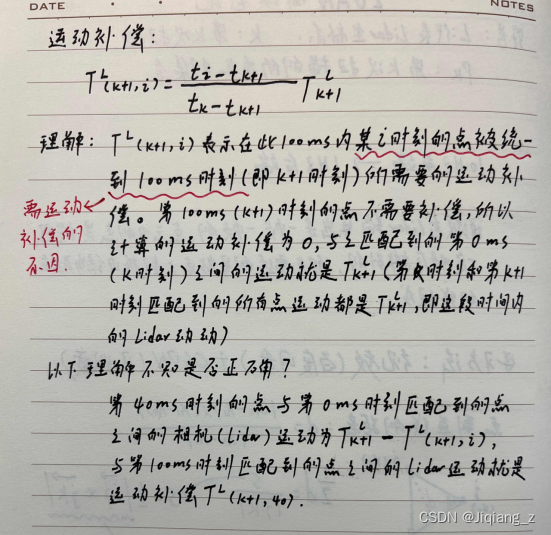 DATE NOTES
运动补偿:
T^L_(k+1,i) = (t_i - t_k+1) / (t_k - t_k+1) T^L_k+1
理解: T^L_(k+1,i) 表示在此100ms内某i时刻的点被统一
到100ms时刻(即k+1时刻)的需要的运动补
偿。第100ms(k+1)时刻的点不需要补偿,所以
计算的运动补偿为0,与之匹配到的第0ms
(k时刻)之间的运动就是T^L_k+1(第k时刻和第k+1
时刻匹配到的所有点运动都是T^L_k+1,即这段时间内
的Lidar动动)
需运动
补偿的
原因.
以下理解不知是否正确?
第40ms时刻的点与第0ms时刻匹配到的点
之间的相机(Lidar)运动为T^L_k+1 - T^L_(k+1,i),
与第100ms时刻匹配到的点之间的Lidar运动就是
运动补偿T^L_(k+1,40).
CSDN @Jiqiang_z